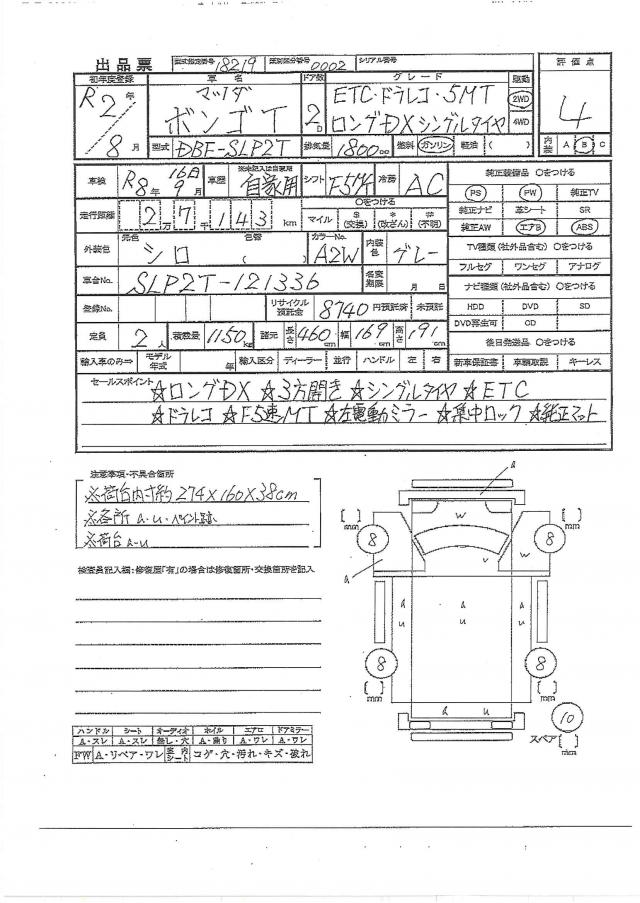 出品票 型式指定番号 18219 類別区分番号 0002 シリアル番号
初年度登録 車名 ドア数 グレード 駆動 評価点
R2年 8月 マツダ ボンゴT 2D ETC・ドラレコ・5MT 2WD 4
ロングDXシングルタイヤ 4WD
型式 DBF-SLP2T 排気量 1800cc 燃料 ガソリン 軽油 ( ) 内装 A B C
車検 R8年 16日 9月 車歴 ※未記入は自家用 自家用 シフト F5Mt 冷房 AC 純正装備品 ○をつける
PS PW 純正TV
走行距離 2万7千143km ○をつける マイル $ (交換) * (改ざん) # (不明) 純正ナビ 革シート SR
純正AW エアB ABS
外装色 元色 シロ 色替 ( ) カラーNo. A2W 内装色 グレー TV種類 (社外品含む) ○をつける
フルセグ ワンセグ アナログ
車台No. SLP2T-121336 名変期限 月 日 ナビ種類 (社外品含む) ○をつける
登録No. リサイクル預託金 8740 円預託済 未預託 HDD DVD SD
DVD再生可 CD
定員 2人 積載量 1150kg 諸元 長さ 460cm 幅 169cm 高さ 191cm 後日発送品 ○をつける
輸入車のみ⇒ モデル年式 年 輸入区分 ディーラー 並行 ハンドル 左 右 新車保証書 車輌取説 キーレス
セールスポイント ☆ロングDX ☆3方開き ☆シングルタイヤ ☆ETC
☆ドラレコ ☆F5速MT ☆左電動ミラー ☆集中ロック ☆純正マット
注意事項・不具合箇所
※荷台内寸約274×160×38cm
※各所 A・U・ペイント跡
※荷台A・U
検査員記入欄:修復歴「有」の場合は修復箇所・交換箇所を記入
A
[ ] mm W [ ] mm
8 W V W 8
A
A U A U A U
8 8
[ ] mm [ ] mm
A U
10
スペア [ ] mm
ハンドル シート オーディオ ホイル エアロ ドアミラー
A・スレ A・スレ 無し・穴 A・曲り A・ワレ A・ワレ
FW A・リペア・ワレ 室内シート コゲ・穴・汚れ・キズ・破れ